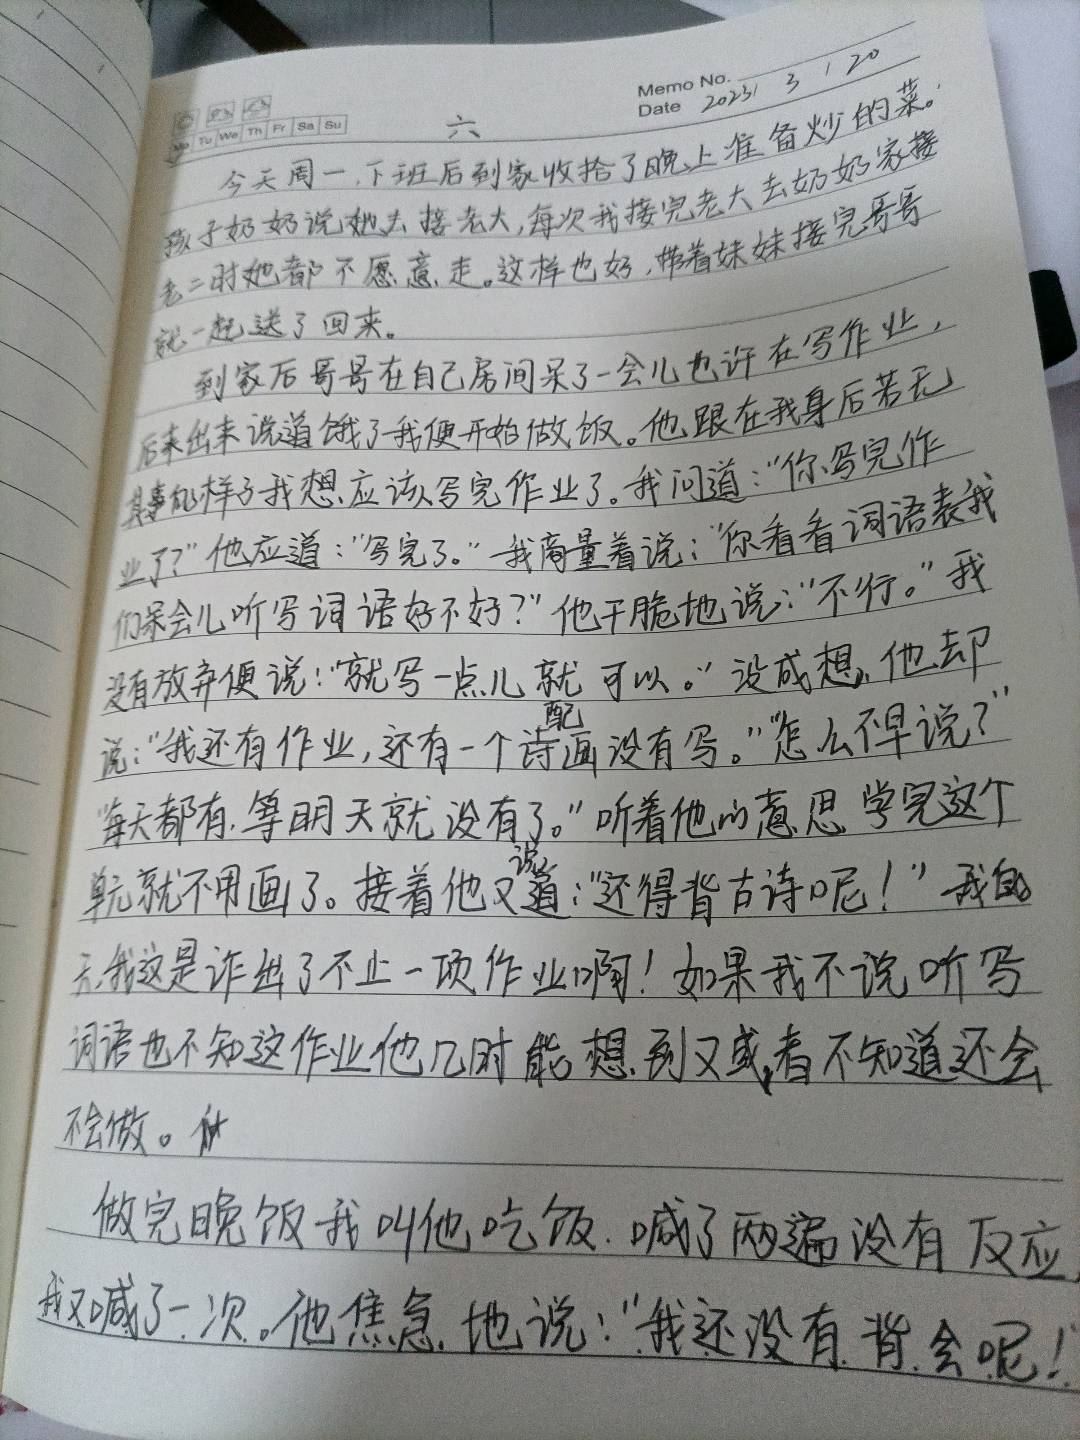 Memo No.
Date 2023/ 3 / 20
Mo Tu We Th Fr Sa Su
六
今天周一,下班后到家收拾了晚上准备炒的菜。
孩子奶奶说她去接老大,每次我接完老大去奶奶家接
老二时她都不愿意走。这样也好,带着妹妹接完哥哥
就一起送了回来。
到家后哥哥在自己房间呆了一会儿也许在写作业,
后来出来说道饿了我便开始做饭。他跟在我身后若无
其事的样子我想应该写完作业了。我问道:“你写完作
业了?”他应道:“写完了。”我商量着说:“你看看词语表我
们呆会儿听写词语好不好?”他干脆地说:“不行。”我
没有放弃便说:“就写一点儿就可以。”没成想,他却
说:“我还有作业,还有一个诗配画没有写。”“怎么不早说?”
“每天都有,等明天就没有了。”听着他的意思学完这个
单元就不用画了。接着他又说道:“还得背古诗呢!”我的
天,我这是诈出了不止一项作业啊!如果我不说听写
词语也不知这作业他几时能想到又或者不知道还会
不会做。
做完晚饭我叫他吃饭,喊了两遍没有反应,
我又喊了一次。他焦急地说:“我还没有背会呢!”